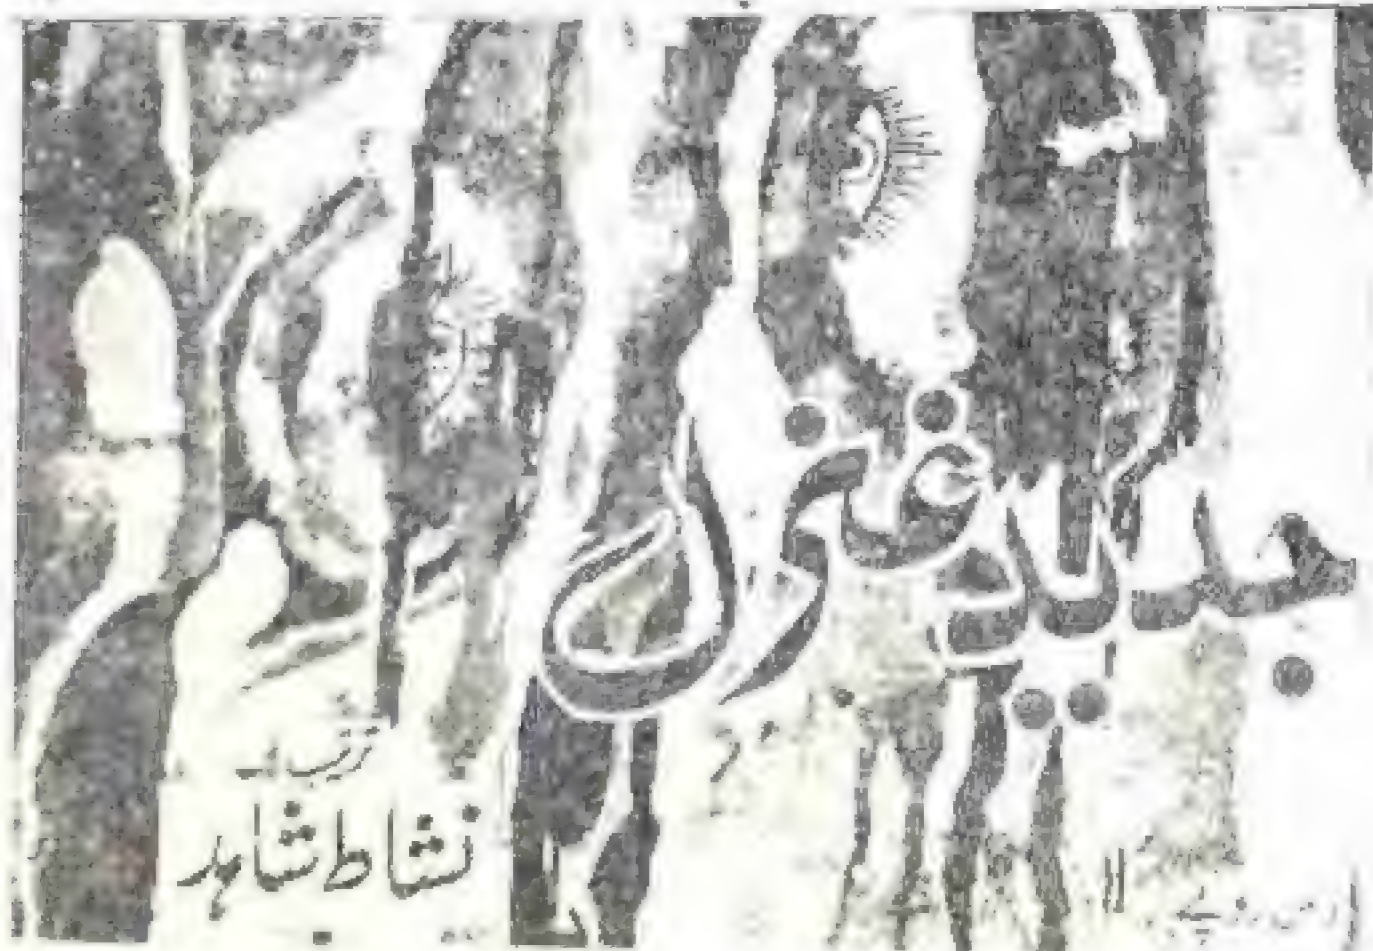 جدید غزل
ترتیب
نشاط شاہد